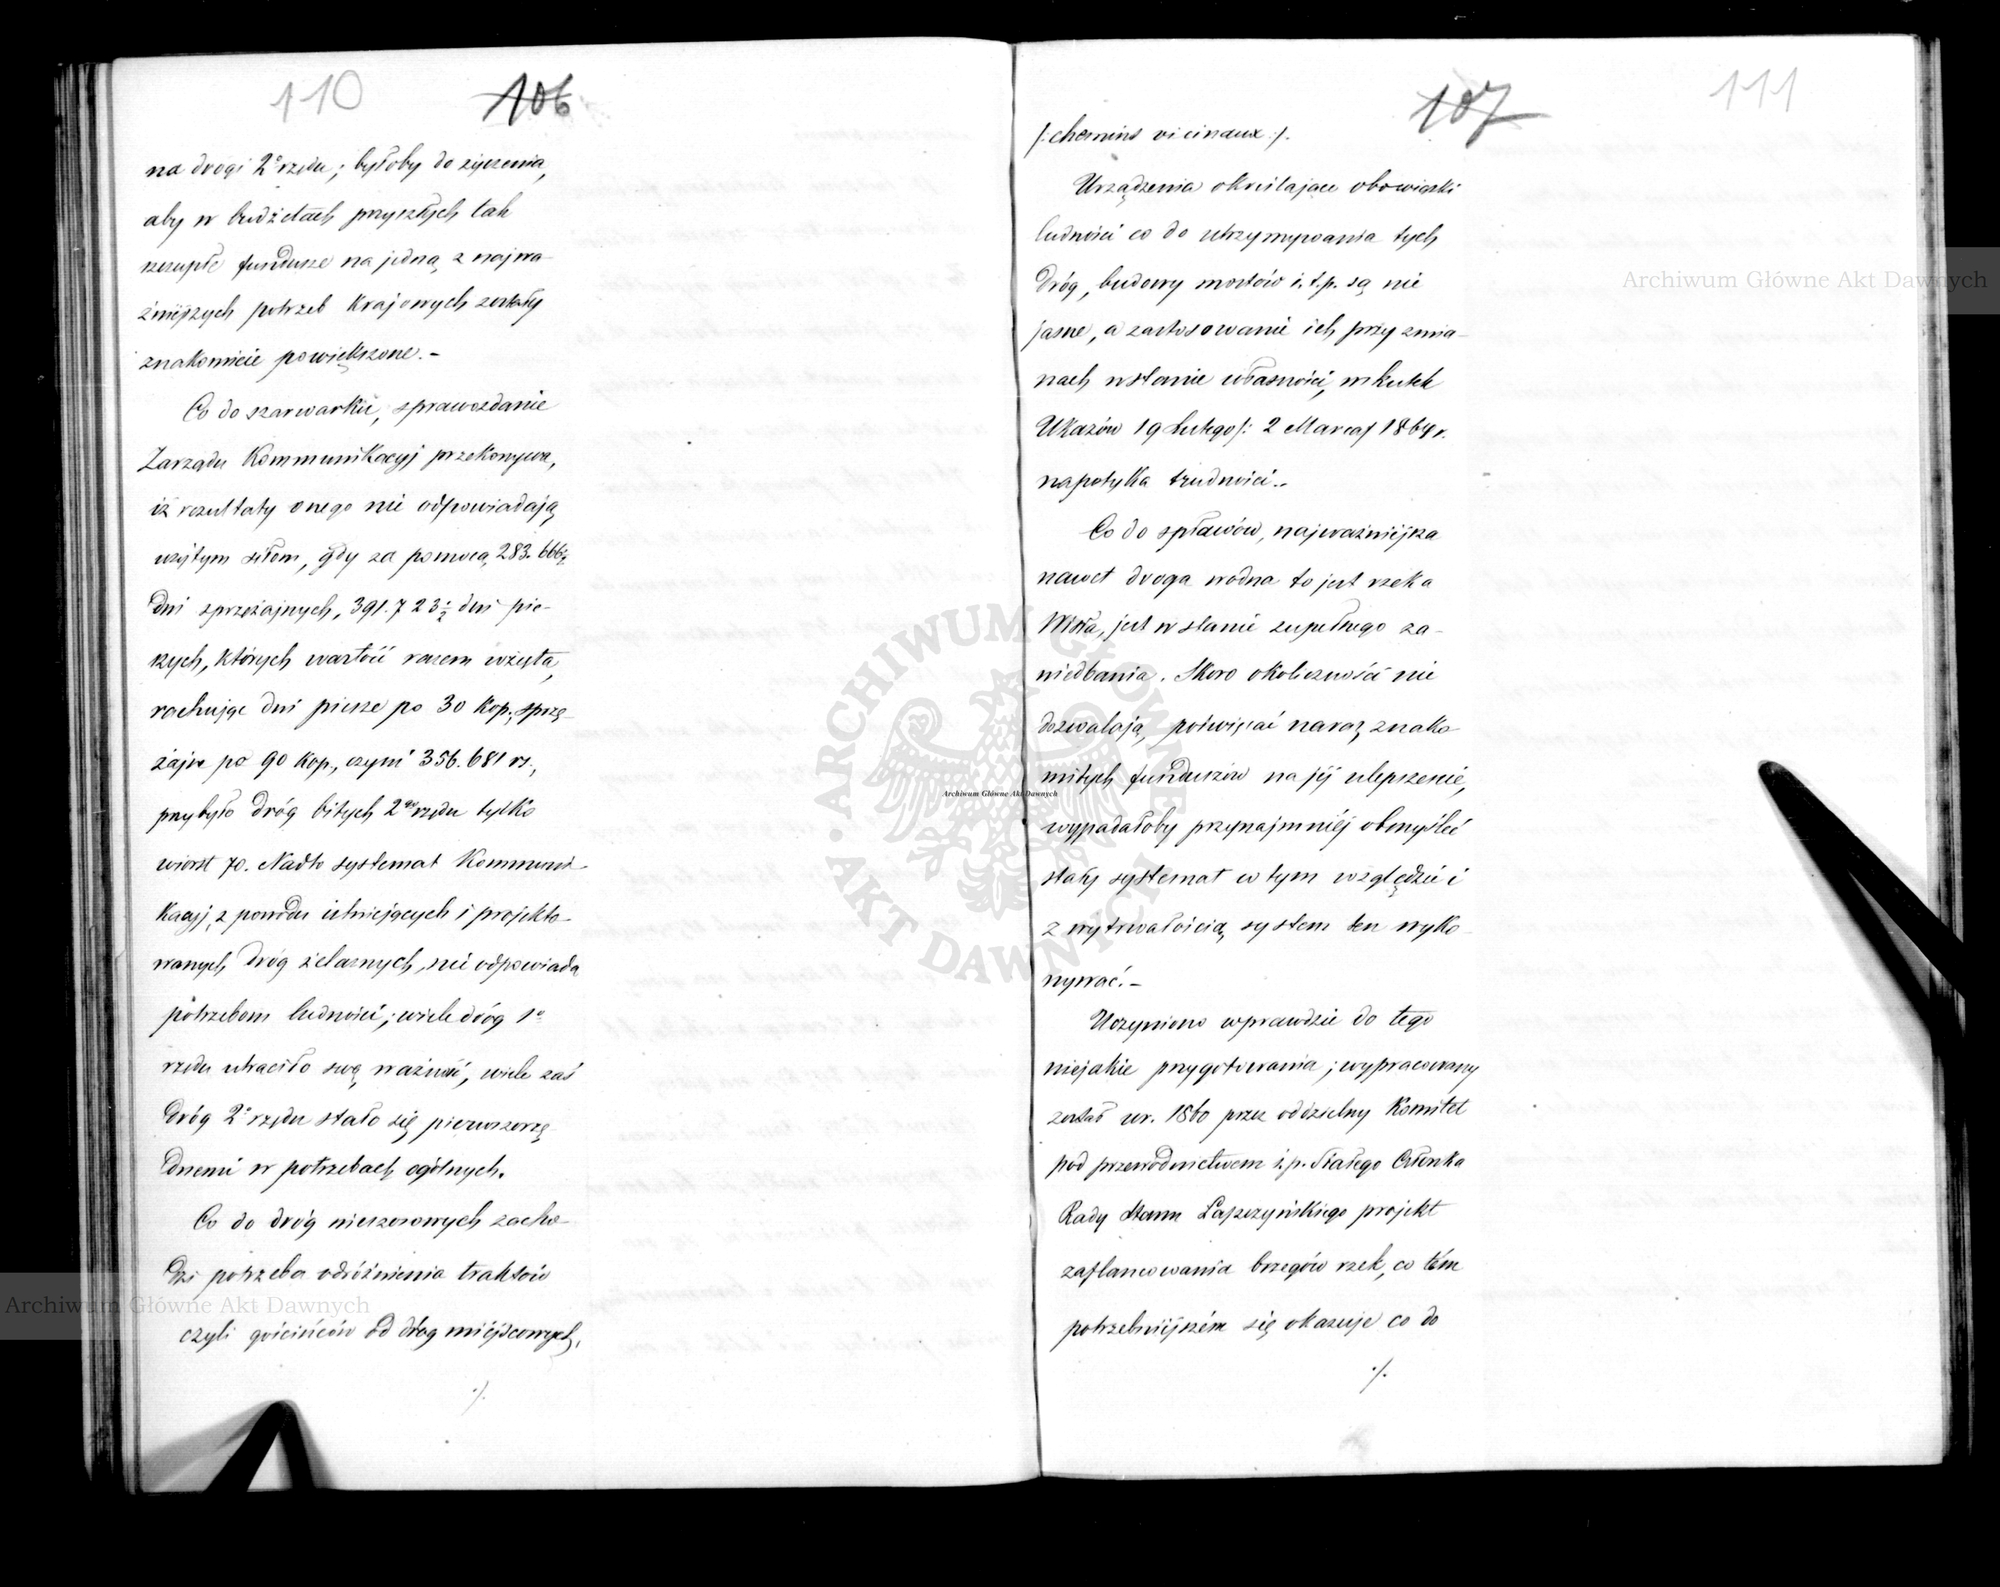 110
106
na drogi 2º rzędu; byłoby do życzenia,
aby w budżetach przyszłych tak
szczupłe fundusze na jedną z najwa-
żniejszych potrzeb krajowych zostały
znakomicie powiększone.-
Co do szarwarku, sprawozdanie
Zarządu Kommunikacyj przekonywa,
iż rezultaty onego nie odpowiadają
użytym siłom, gdy za pomocą 283.666½
dni sprzężajnych, 391.723½ dni pie-
szych, których wartość razem wzięta,
rachując dni piesze po 30 kop., sprzę-
żajne po 90 kop., czyni 356.681 rs.,
przybyło dróg bitych 2go rzędu tylko
wiorst 70. Nadto systemat Kommuni-
kacyj, z powodu istniejących i projekto-
wanych dróg żelaznych, nie odpowiada
potrzebom ludności; wiele dróg 1º
rzędu utraciło swą ważność, wiele zaś
dróg 2º rzędu stało się pierwszorzę-
dnemi w potrzebach ogólnych.
Co do dróg nieszosowych zacho-
dzi potrzeba odróżnienia traktów
czyli gościńców od dróg miejscowych,
./.
107
111
/:chemins vicinaux:/.
Urządzenia określające obowiązki
ludności co do utrzymywania tych
dróg, budowy mostów i.t.p. są nie
jasne, a zastosowanie ich przy zmia-
nach w stanie własności, wskutek
Ukazów 19 Lutego /: 2 Marca / 1864 r.
napotyka trudności.-
Co do spławów, najważniejsza
nawet droga wodna to jest rzeka
Wisła, jest w stanie zupełnego za-
niedbania. Skoro okoliczności nie
dozwalają poświęcać naraz znako-
mitych funduszów na jéj ulepszenie,
wypadałoby przynajmniéj obmyśleć
stały systemat w tym względzie i
z wytrwałością system ten wyko-
nywać.-
Uczyniono wprawdzie do tego
niejakie przygotowania; wypracowany
został w r. 1860 przez oddzielny Komitet
pod przewodnictwem ś.p. Stałego Członka
Rady Stanu Łapczyńskiego projekt
zaplanowania brzegów rzek, co tém
potrzebniejszém się okazuje co do
./.
Archiwum Główne Akt Dawnych
Archiwum Główne Akt Dawnych
Archiwum Główne Akt Dawnych
ARCHIWUM GŁÓWNE AKT DAWNYCH